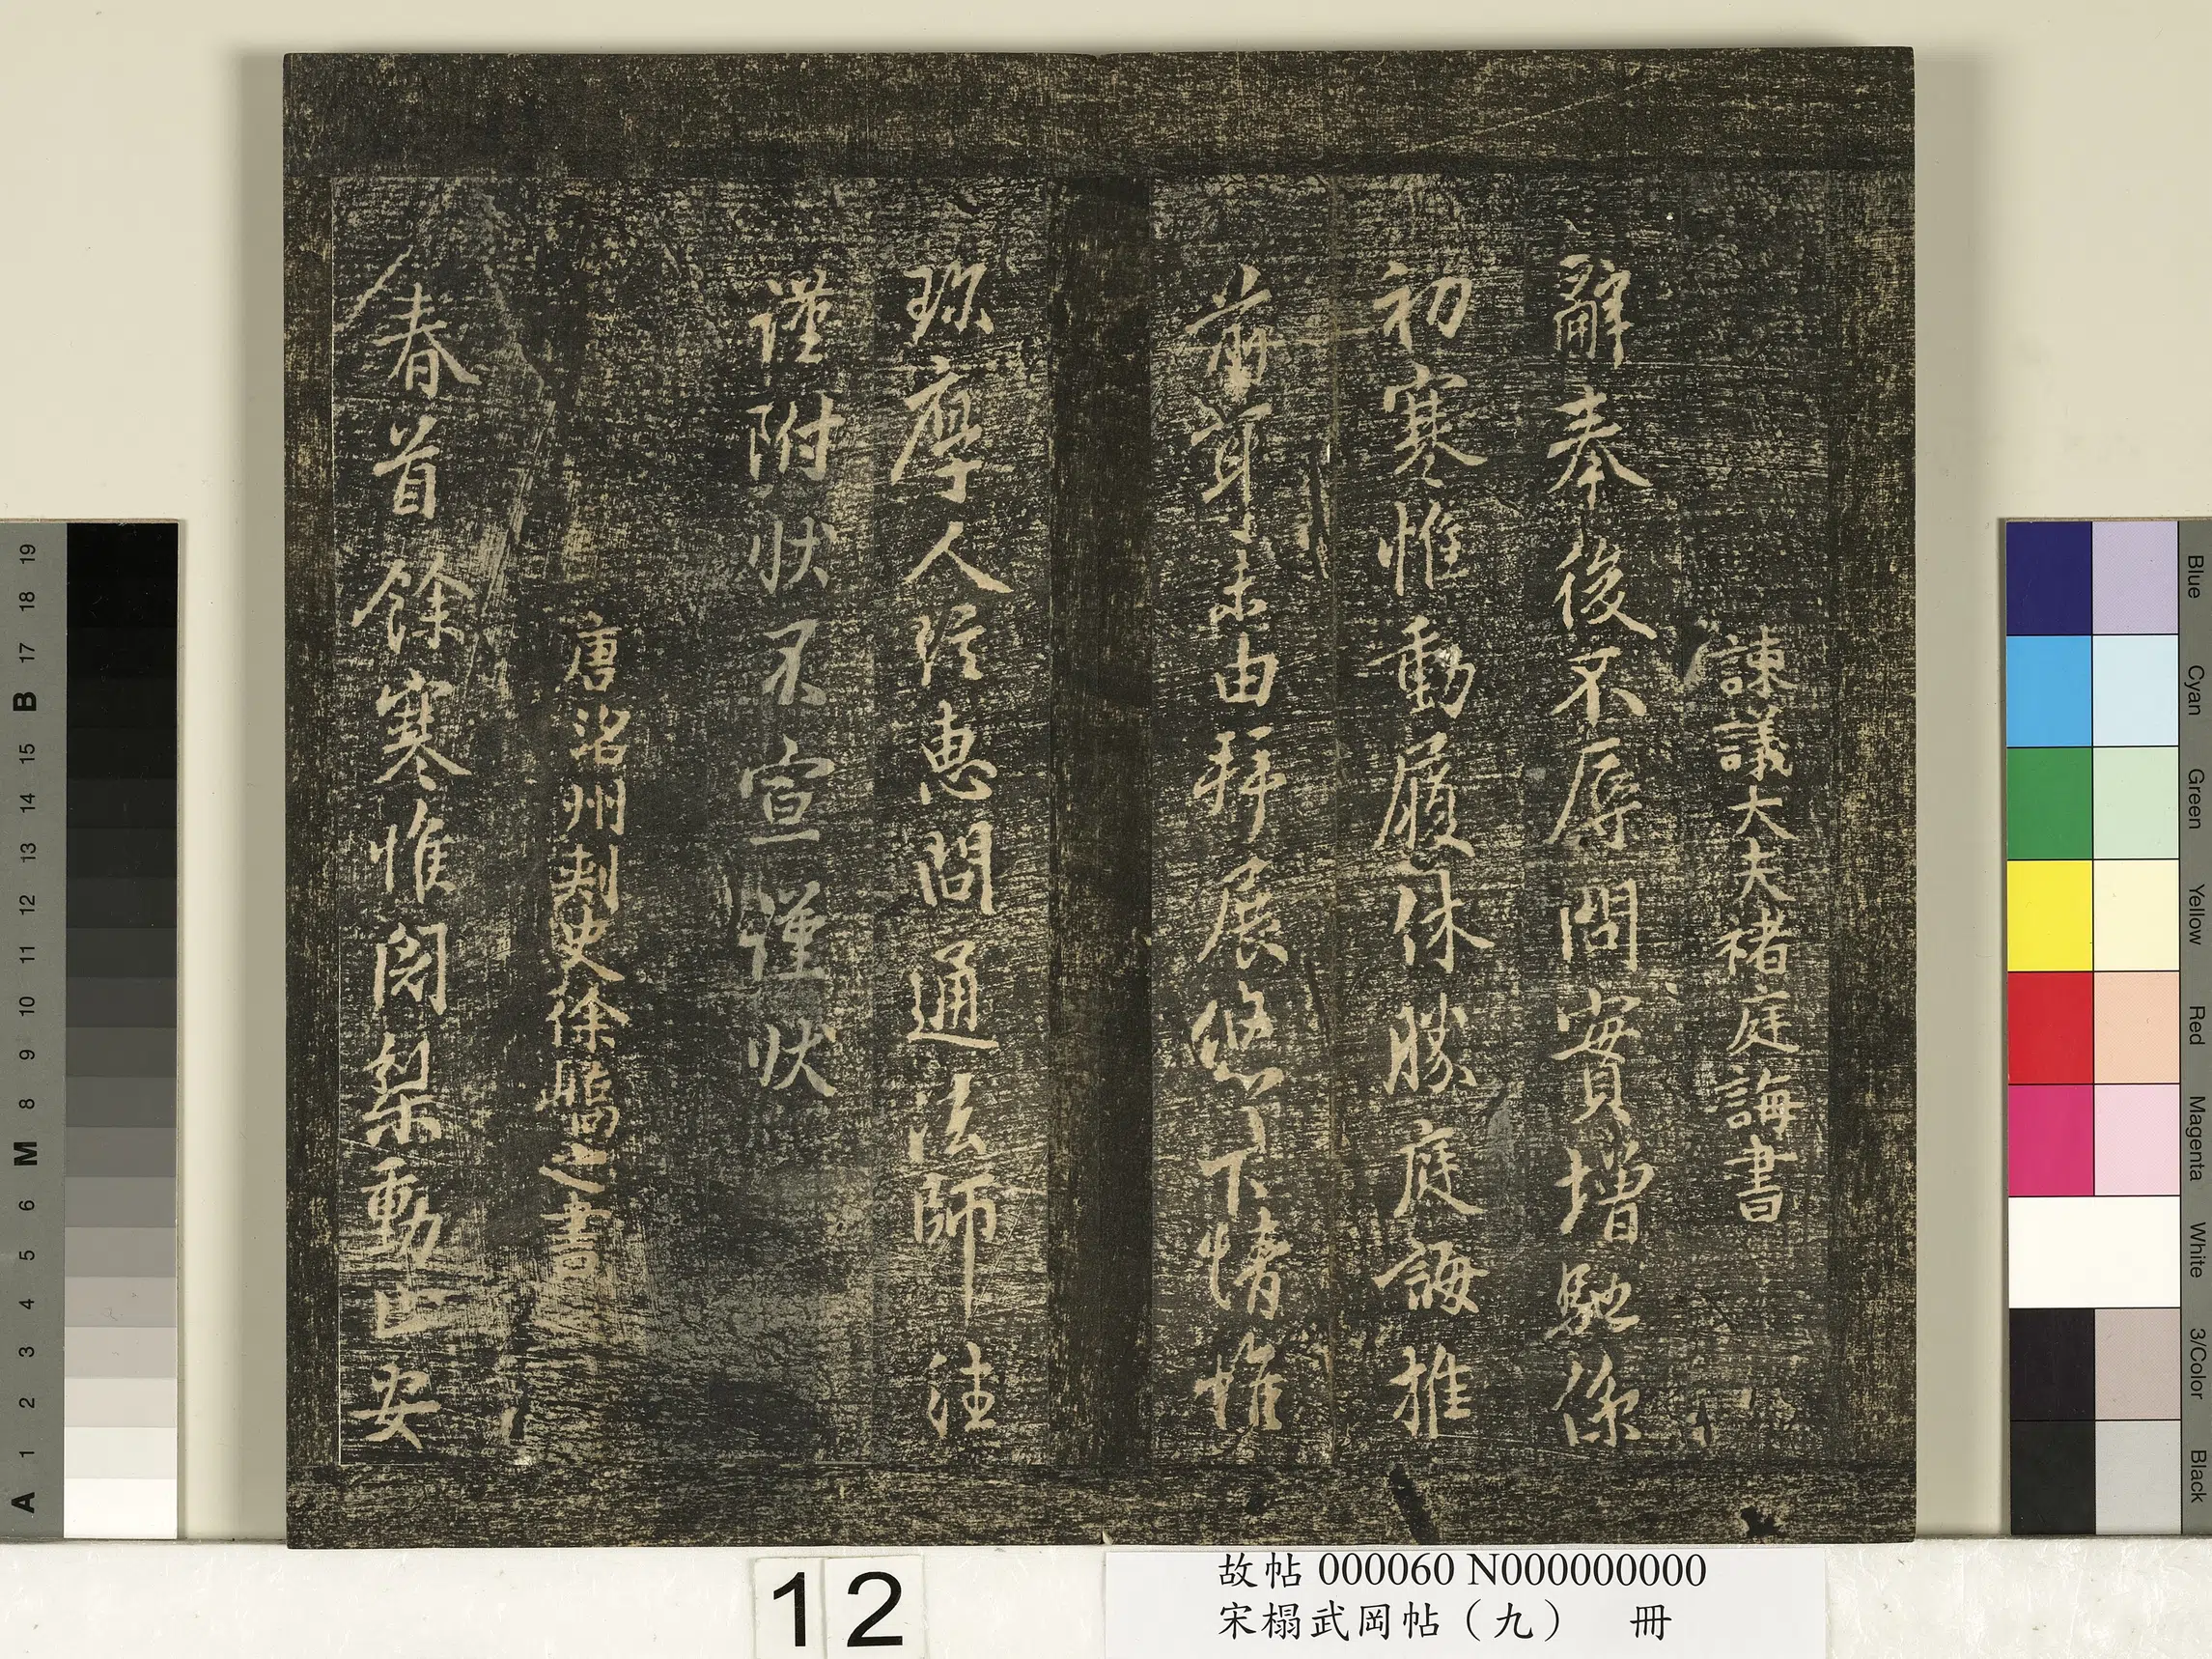 諫議大夫褚庭誨書
辭奉後不辱問實增馳係
初寒惟動履休勝庭誨推
前耳未由拜展悠下情惟
珎厚人往惠問通法師注
謹附狀不宣謹狀
唐洺州刺史徐嶠之書
春首餘寒惟闍梨動止安
12
故帖 000060 N000000000
宋榻武岡帖（九） 冊
A 1 2 3 4 5 6 M 8 9 10 11 12 13 14 15 B 17 18 19
Blue
Cyan
Green
Yellow
Red
Magenta
White
3/Color
Black